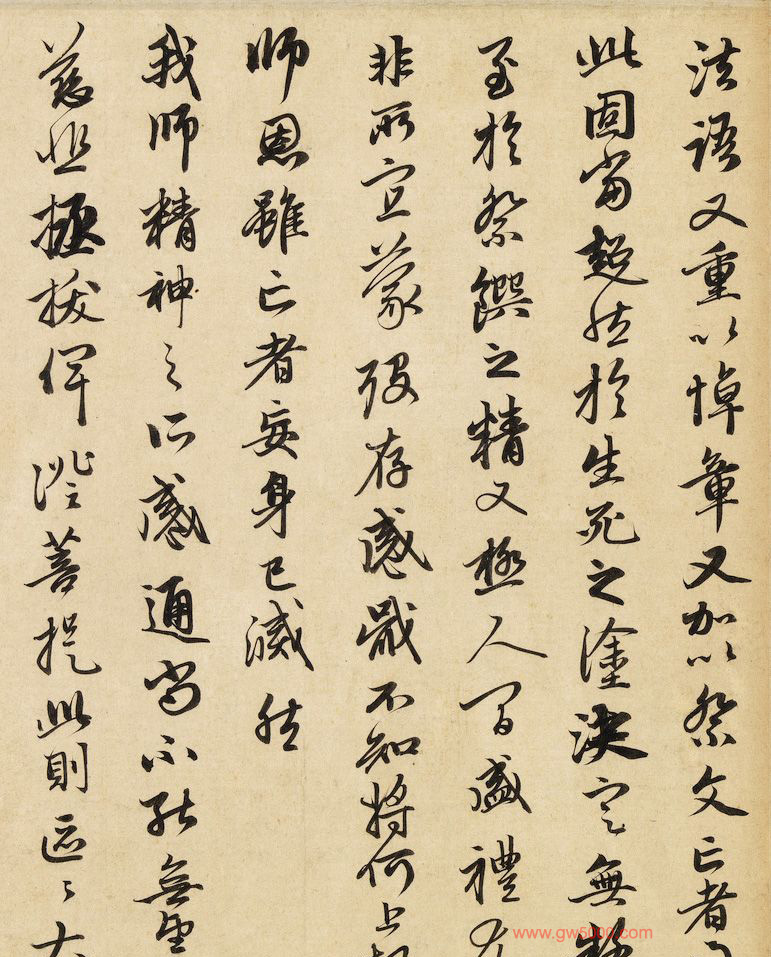 法語又重以悼章又加以祭文亡者
此固當超然於生死之塗決定無疑
至於祭饌之精又極人間盛禮尤
非所宜蒙歿存感戴不知將何上報
師恩雖亡者妄身已滅然
我師精神之所感通尚不能無望
慈悲拯拔俾證菩提此則區〻大
www.gw5000.com